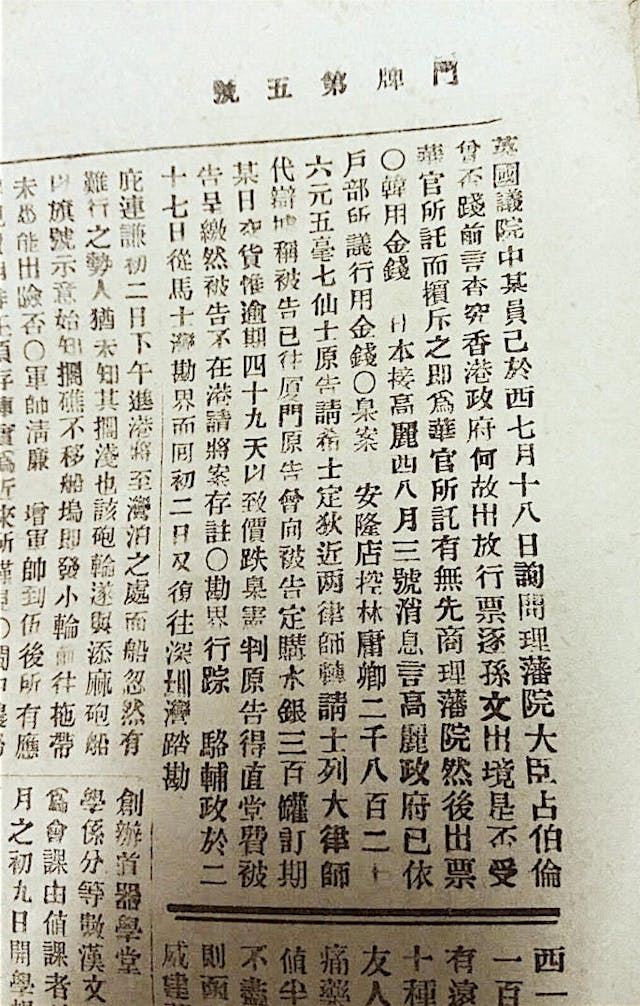 門牌第五號
英國議院中某員已於西七月十八日詢問理藩院大臣占伯倫
曾否踐前言查究香港政府何故出放行票逐孫文出境是否受
華官所託而擯斥之即爲華官所託有無先商理藩院然後出票
〇韓用金錢 日本接高麗西八月三號消息言高麗政府已依
戶部所議行用金錢〇臬案 安隆店控林庸卿二千八百二十
六元五毫七仙士原告請希士定狄近两律師轉請士列大律師
代辯據稱被告已往厦門原告曾向被告定購水銀三百罐訂期
某日交貨惟逾期四十九天以致價跌臬憲判原告得直堂費被
告呈繳然被告不在港請將案存註〇勘界行踪 駱輔政於二
十七日從馬士灣勘界而回初二日又復往深圳灣踏勘
庇連謙初二日下午進港將至灣泊之處而船忽然有
難行之勢人猶未知其擱淺也該砲輪遂與添麻砲船
以旗號示意始知擱礁不移船塢即發小輪前往拖帶
未悉能出險否〇軍帥淸廉 增軍帥到伍後所有應
西一
一百
有遠
十種
友人
痛藥
値半
不盡
則函
威建
創辦首器學堂
學係分等數漢文
爲會課由値課者
月之初九日開學